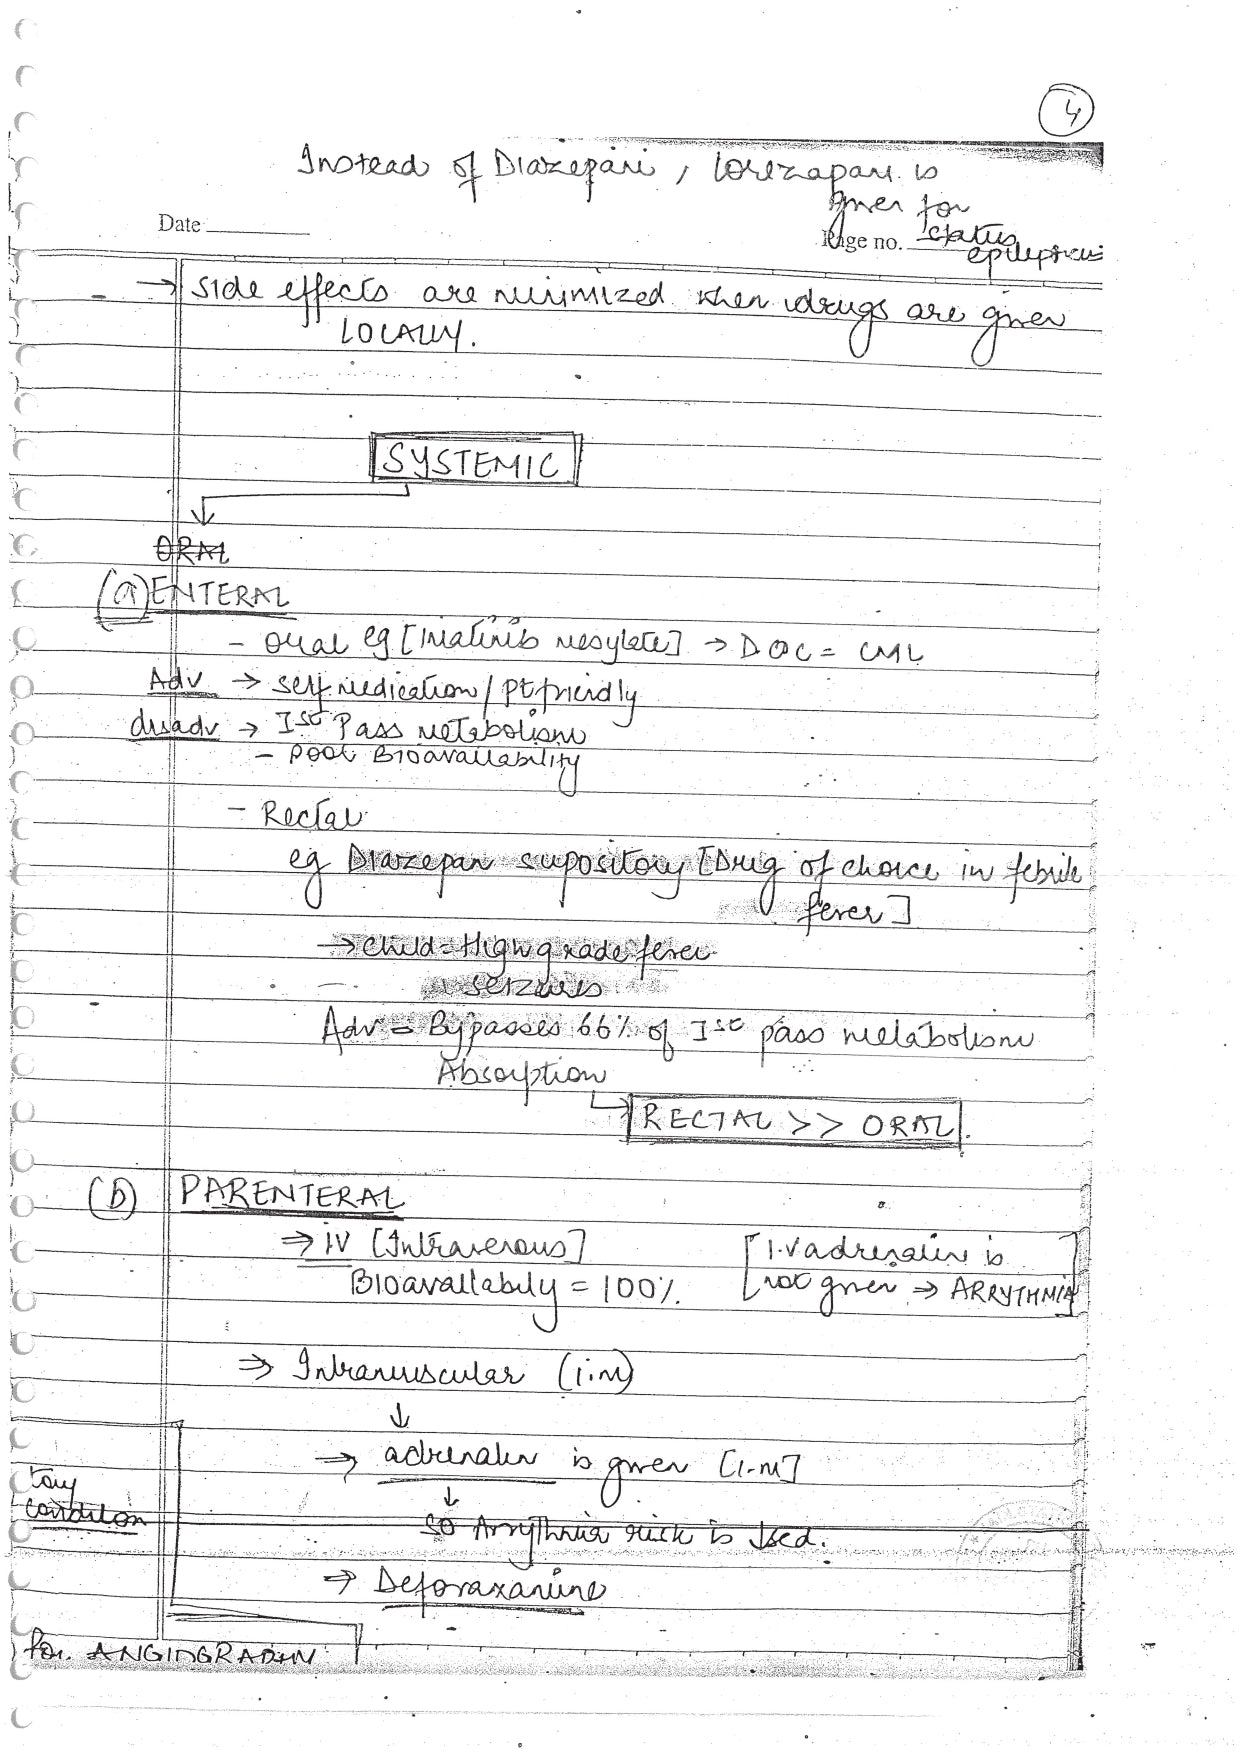 4
Instead of Diazepam, lorezapam is
given for
status
epilepticus
Date
Page no.
→ side effects are minimized when drugs are given
LOCALLY.
SYSTEMIC
ORAL
(a) ENTERAL
- oral eg [Imatinib mesylate] → DOC = CML
Adv → self medication / pt friendly
disadv → Ist Pass metabolism
- poor Bioavailability
- Rectal
eg Diazepam supository [Drug of choice in febrile
fever]
→ child = High grade fever
seizures
Adv = Bypasses 66% of Ist pass metabolism
Absorption
RECTAL >> ORAL.
(b) PARENTERAL
⇒ iv [Intravenous]
Bioavailabily = 100%.
[I.V adrenalin is
not given ⇒ ARRYTHMIA]
⇒ Intramuscular (i.m)
↓
⇒ adrenalin is given [I.M]
↓
so Arrythmia risk is ↓sed.
⇒ Deforaxamine
tory
condition
for ANGIOGRAPHY